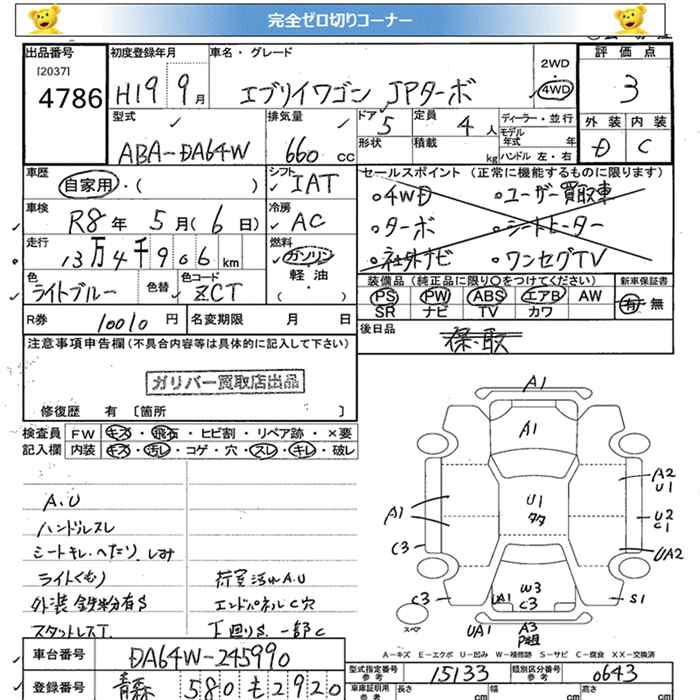 完全ゼロ切りコーナー
出品番号 初度登録年月 車名・グレード 2WD 評価点
[2037]
4786 H19 9月 エブリイワゴン JPターボ 4WD 3
型式 排気量 ドア 5 定員 4人 ディーラー・並行 外装 内装
モデル年式 年
ABA-DA64W 660cc 形状 積載 kg ハンドル 左・右 D C
車歴 シフト セールスポイント (正常に機能するものに限ります)
自家用・( ) IAT 4WD ユーザー買取車
車検 R8年 5月(6日) 冷房 AC ターボ シートヒーター
走行 13万4千906km 燃料 ガソリン 社外ナビ ワンセグTV
軽油
( ・ )
色 色替 色コード 装備品 (純正品に限り○をつけてください) 新車保証書
ライトブルー ZCT PS PW ABS エアB AW 有・無
SR ナビ TV カワ
R券 10010円 名変期限 月 日 後日品 保・取
注意事項申告欄 (不具合内容等は具体的に記入して下さい)
ガリバー買取店出品
修復歴 有 [箇所 ]
検査員 FW キズ・飛石・ヒビ割・リペア跡・×要
記入欄 内装 キズ・汚レ・コゲ・穴・スレ・キレ・破レ
A.U
ハンドルスレ
シートキレ・へたり、しみ
ライトくもり 荷室汚れA.U
外装鉄粉有S エンドパネルC穴
スタットレスT. 下回りS.一部C
A1
A1
A1
C3
U1
タタ
A2
U1
U2
C1
UA2
W3
C3
UA1
C3
S1
スペア
UA1
A3
P粗
A-キズ E-エクボ U-凹み W-補修跡 S-サビ C-腐食 XX-交換済
車台番号 DA64W-245990 型式指定番号 参考 15133 類別区分番号 参考 0643
登録番号 青森 580 も 2920 車庫証明用 参考 長さ cm 幅 cm 高さ cm